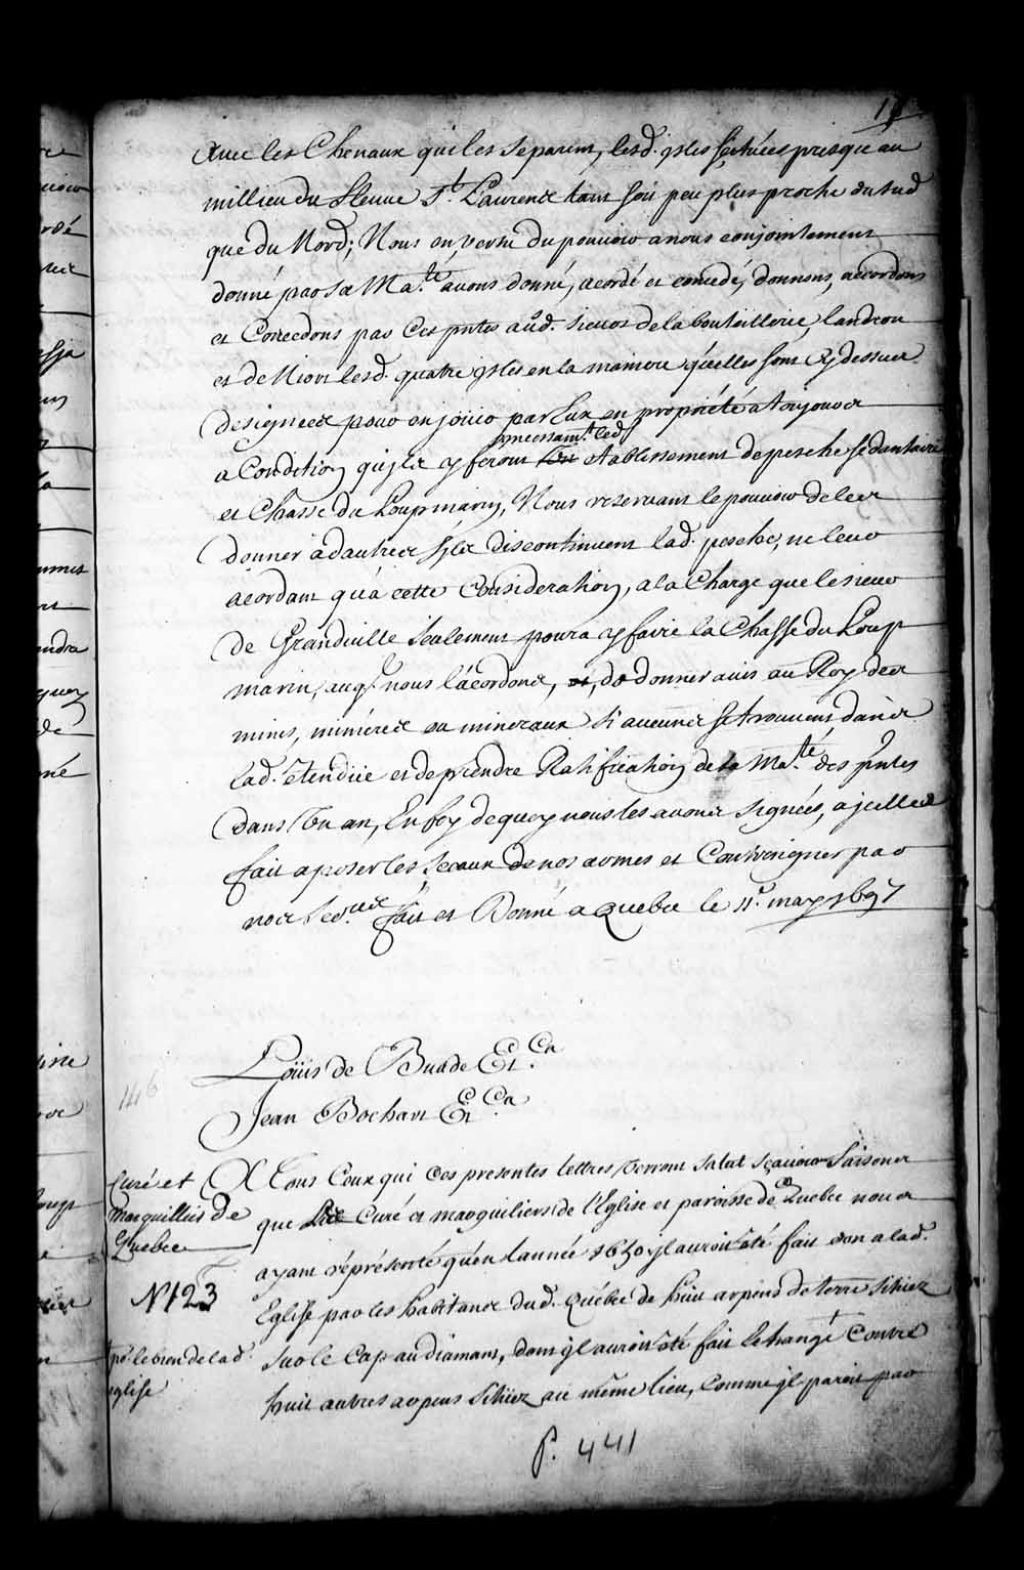 Avec les Chenaux qui les separent, lesd. isles scituées presque au
millieu du fleuve St. Laurence tant soi peu plus proche du sud
que du Nord; Nous en vertu du pouvoir a nous conjointement
donné par sa Ma.té avons donné, acordé et concedé, donnons, accordons
et Concedons par Ces pntes aud. sieurs de la bouteillerie, landron
et de Niort lesd. quatre isles en la maniere quelles sont Cy dessus
designees pour en joüir par Eux en propriété a Toujours
incessam.t led.
a Condition qu'ils y feront Un etablissement de pesche sédentaire
et Chasse du Loup marin, Nous reservant le pouvoir de les
donner a dautres s'ils discontinuent lad. pesche, ne leur
acordant qu'a cette Consideration, a la Charge que le sieur
de Grandville sealement poura y faire la Chasse du Loup
marin, auql. nous l'acordons, et, de donner avis au Roy des
mines, minieres ou mineraux si aucunes se trouvent dans
Lad. étendüe et de prendre Ratification de sa Ma.té des pntes
dans Un an, En foy de quoy nous les avons signées, a jcelles
fait aposer les sceaux de nos armes et Contresigner par
nos secr.res fait et Donné a Quebec le 11.e may 1697
Loüis de Buade Et.Ca
Jean Bochart Et.Ca
146
Curé et
Marguilliers de
Quebec
N.º 123
po. le bien de lad.
eglise
A Tous Ceux qui Ces presentes lettres Verront salut sçavoir faisons
que Les Curé et marguiliers de l'Eglise et paroisse de Quebec nous
ayant réprésenté qu'en lannée 1650 jl auroit été fait don a lad.
Eglise par les habitans dud. Québec de huit arpens de terre situez
sur le Cap au diamant, dont jl auroit été fait Echange Contre
huit autres arpens Sitüez au même lieu, Comme jl paroit par
P. 441